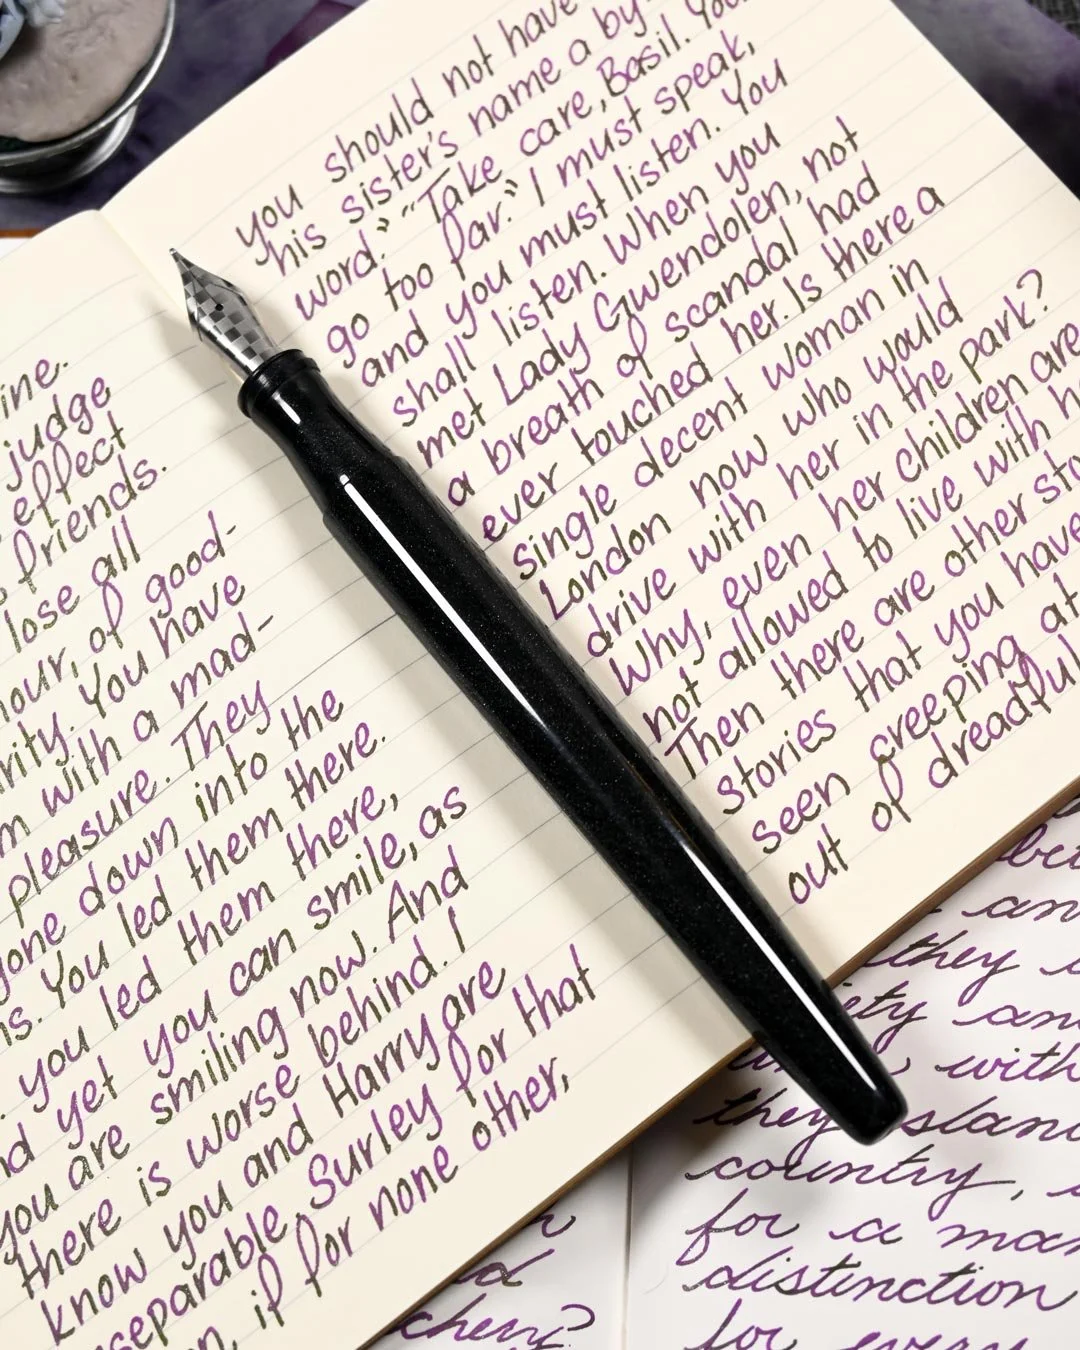 ine.
judge
effect
friends.
lose all
honour, of good-
You have
with a mad-
pleasure. They
gone down into the
You led them there.
you led them there,
yet you can smile, as
you are smiling now. And
there is worse behind. I
know you and Harry are
inseparable. Surley for that
if for none other,
you should not have
his sister's name a by-
word." "Take care, Basil. You
go too far." "I must speak,
and you must listen. You
shall listen. When you
met Lady Gwendolen, not
a breath of scandal had
ever touched her. Is there a
single decent woman in
London now who would
drive with her in the park?
Why, even her children are
not allowed to live with
Then there are other
stories that you have
seen creeping at
out of dreadful
an
they
and
with
they stand
country,
for a man
distinction
for every